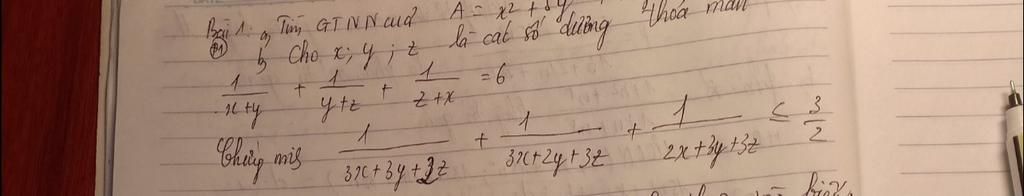 Bài 1: a, Tìm GTNN của A = x² + 5y
b, Cho x; y; z là các số dương thỏa mãn
1/(x+y) + 1/(y+z) + 1/(z+x) = 6
Chứng mis 1/(3x+3y+2z) + 1/(3x+2y+3z) + 1/(2x+3y+3z) ≤ 3/2